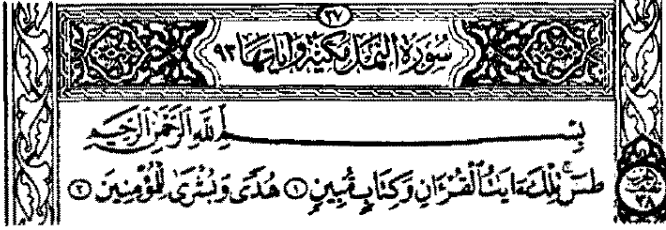 ٢٧
سُورَةُ النَّمْلِ مَكِّيَّةٌ وَآيَاتُهَا ٩٣
بِسْمِ ٱللَّهِ ٱلرَّحْمَٰنِ ٱلرَّحِيمِ
طسٓ ۚ تِلْكَ ءَايَٰتُ ٱلْقُرْءَانِ وَكِتَابٍ مُّبِينٍ ① هُدًى وَبُشْرَىٰ لِلْمُؤْمِنِينَ ②
٣٨